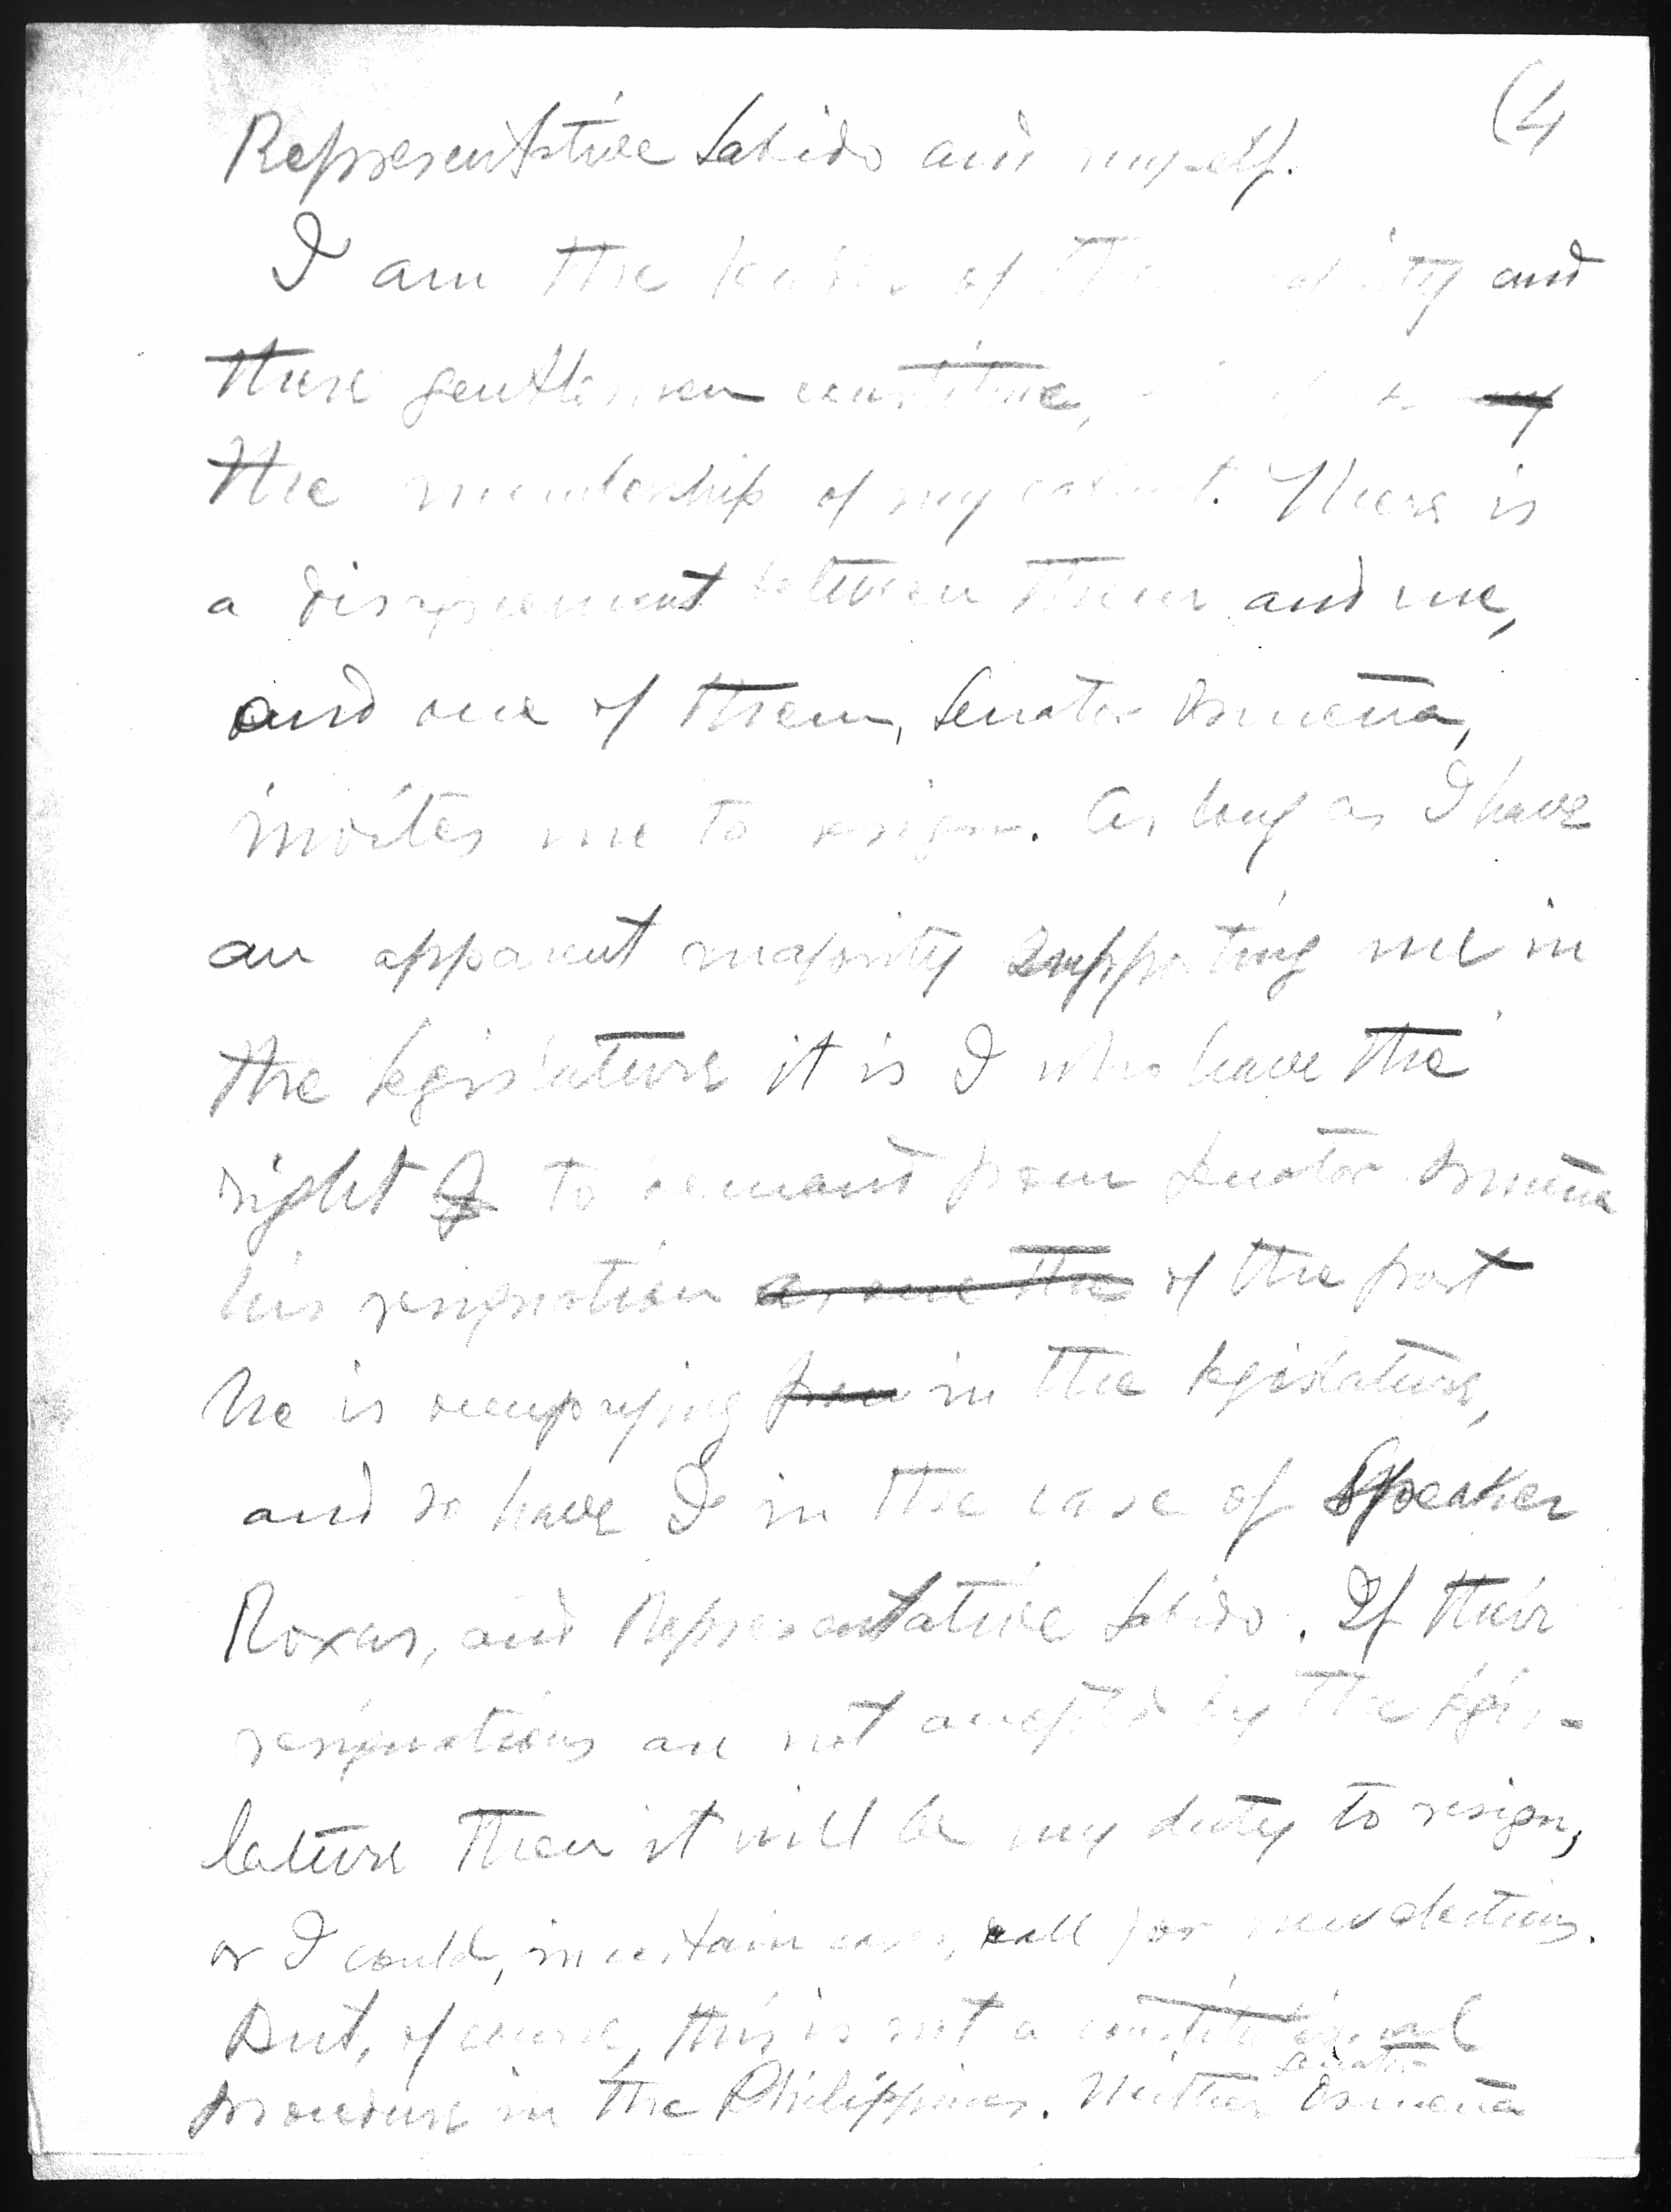 (4
Representative Sabido and myself.
I am the leader of the majority and
these gentlemen constitute,
the membership of my cabinet. There is
a disagreement between them and me,
and one of them, Senator Osmeña,
invites me to resign. As long as I have
an apparent majority supporting me in
the legislature it is I who have the
right to demand from Senator Osmeña
his resignation as one the of the post
he is occupying from in the legislature,
and so have I in the case of Speaker
Roxas, and Representative Sabido. If their
resignations are not accepted by the legis-
lature then it will be my duty to resign,
or I could, in certain cases, call for new elections.
But, of course, this is not a constitutional
Senator
procedure in the Philippines. Neither Osmeña